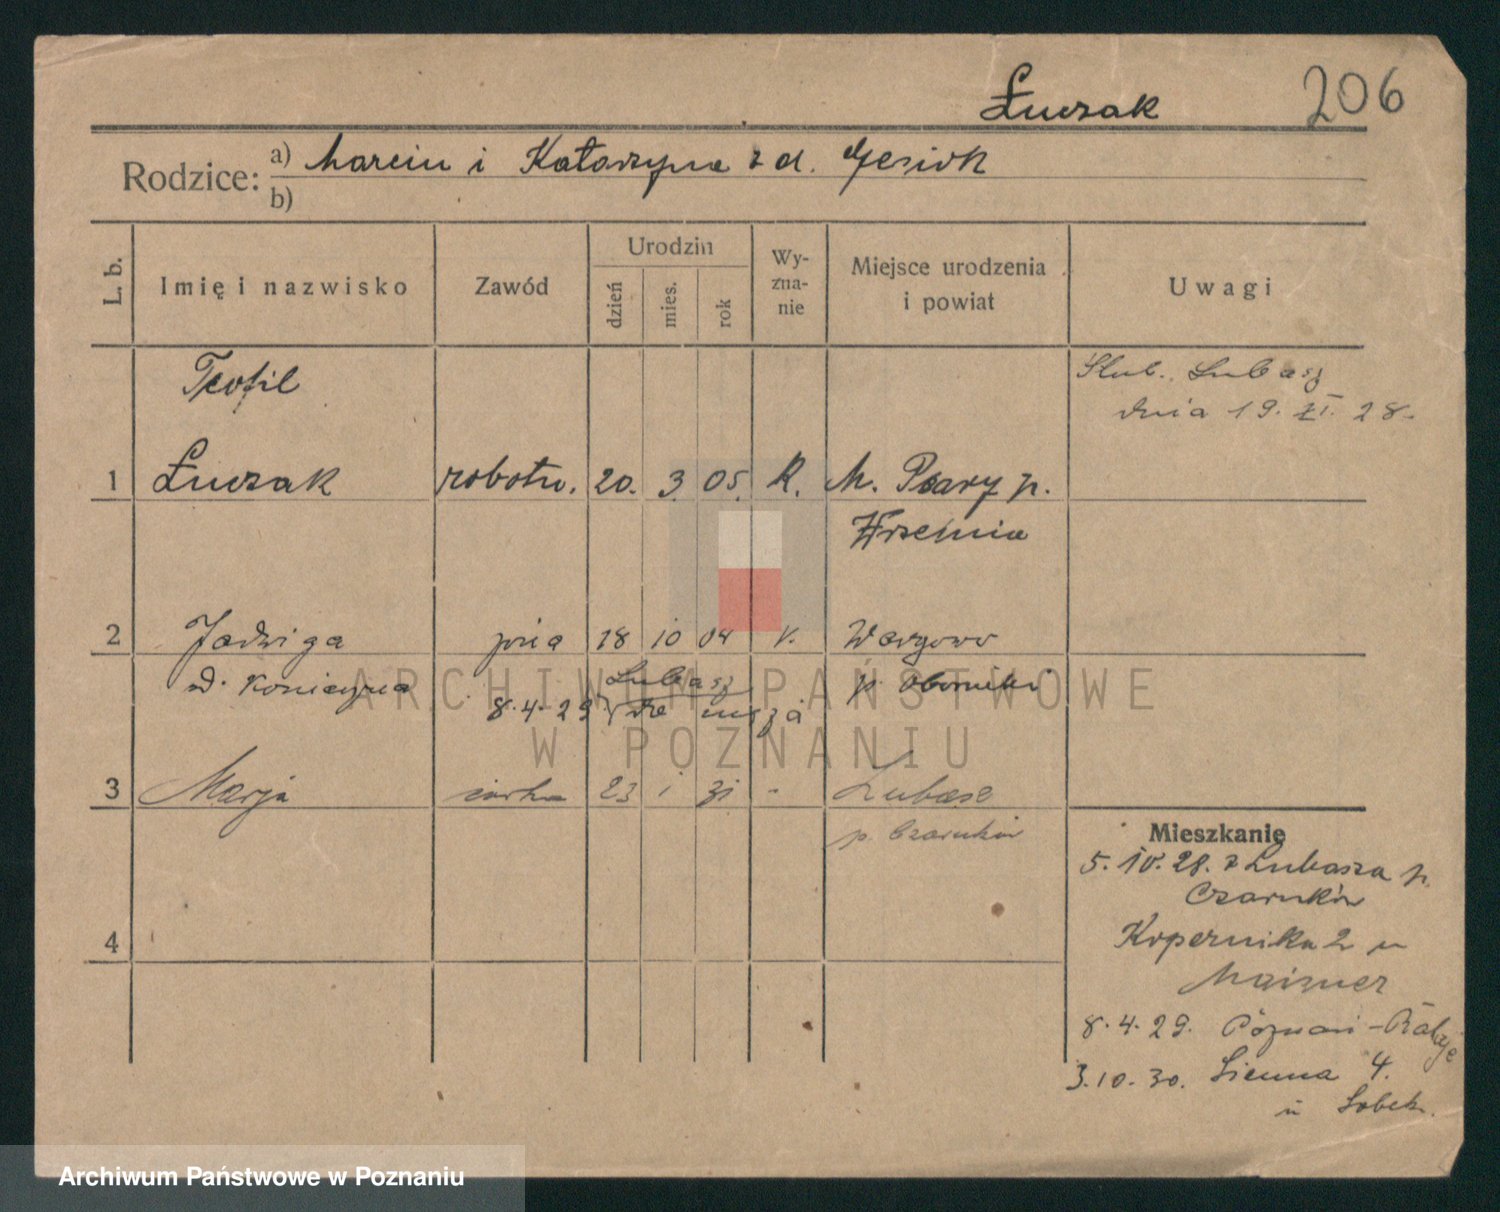 Łuczak 206
Rodzice: a) Marcin i Katarzyna z d.
b)
L. b. Imię i nazwisko Zawód Urodzin dzień mies. rok Wy-zna-nie Miejsce urodzenia i powiat Uwagi
Teofil Ślub. Lubasz
dnia 19. XI. 28.
1 Łuczak robotn. 20. 3. 05. K. M. Psary p.
Września
2 Jadwiga 18 10 04 k. Wargowo
d. p. Oborniki
8.4.29 Lubasz
3 Marja córka 23 1 31 - Lubasz
p. Czarnków
4
Mieszkanie
5. 10. 28. z Lubasza p.
Czarnków
Kopernika 2 u
8.4.29. Poznań - Rataje
3.10.30. Sienna 4.
u
ARCHIWUM PAŃSTWOWE
W POZNANIU
Archiwum Państwowe w Poznaniu